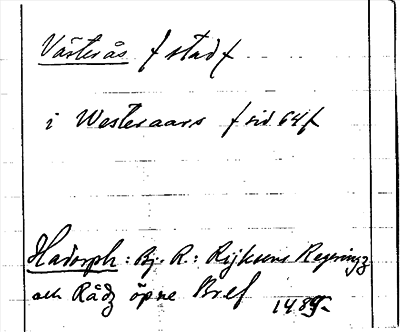 Västerås /stad/
i Westeraars /sid 64/
Hadorph: Bj. R.: Rijksens Regeringz
och Rådz öpne Bref 1485